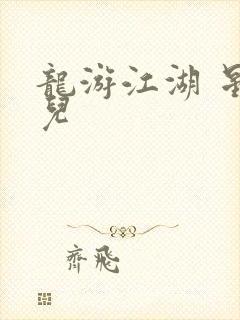 龍游江湖
兒
齊飛